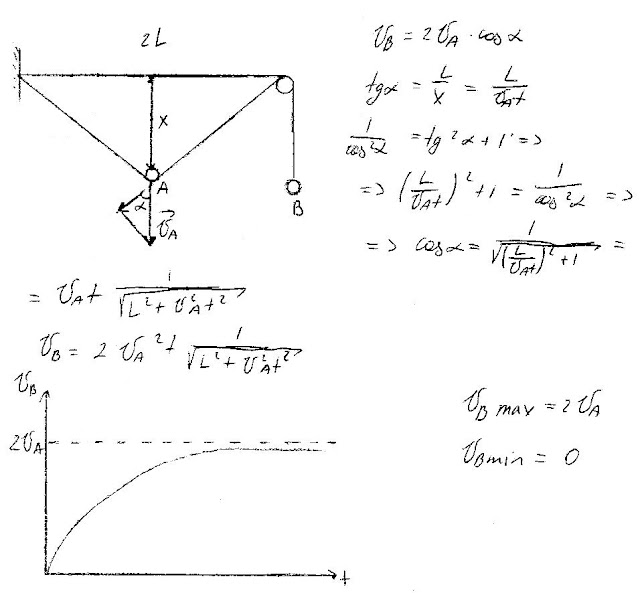 2L
x
A
B
α
v⃗_A
v_B = 2v_A · cos α
tg α = L/x = L/(v_A t)
1/cos²α = tg²α + 1 =>
=> (L/(v_A t))² + 1 = 1/cos²α =>
=> cos α = 1/√((L/(v_A t))² + 1) =
= v_A t 1/√(L² + v_A² t²)
v_B = 2 v_A² t 1/√(L² + v_A² t²)
v_B
2v_A
t
v_B max = 2v_A
v_B min = 0